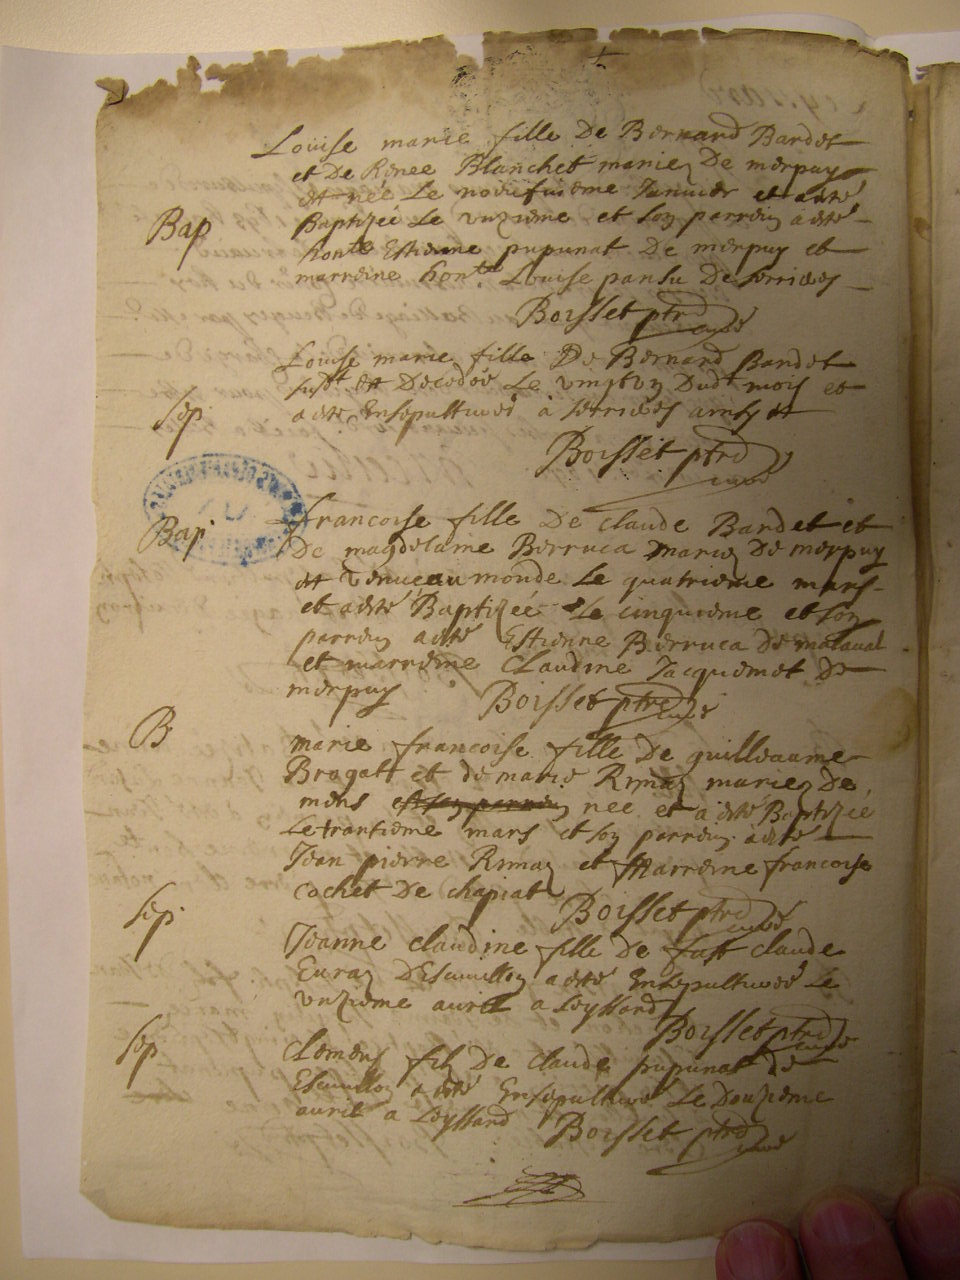 Louise marie fille De Bernard Bardet
et De Renee Blanchet mariez De merpuy
est née Le neufuieme Januier et a esté
Bap
Baptizée Le vnzieme et son parrein a esté
hon.te Estienne pupunat De merpuy et
marreine hon.te Louise pansu De serrieres
Boisset ptre
curé
Louise marie fille De Bernard Bardet
susdt est Decedée Le vingtvn Dudt mois et
Sep
a esté Ensepulturée à serrieres
Boisset ptre
curé
francoise fille De Claude Bardet et
Bap
De magdelaine Berruca mariez De merpuy
est venue au monde Le quatrieme mars
et a esté Baptizée Le cinquieme et son
parrein a esté Estienne Berruca De malaual
et marreine Claudine Jacquemet De
merpuy Boisset ptre
curé
B
marie francoise fille De guilleaume
Brogatt et de marie mariez De
mens est son parrein née et a esté Baptizée
Le trantieme mars et son parrein a esté
Jean pierre et marreine francoise
cochet De chapiat
Boisset ptre
curé
Sep
Jeanne claudine fille De claude
D'Escuuillon a esté Ensepulturée Le
vnzieme auril a Leyssard
Boisset ptre
curé
Sep
Clemens filz De claude pupunat de
Escuuillon a esté Ensepulturé Le Douzieme
auril a Leyssard Boisset ptre
curé